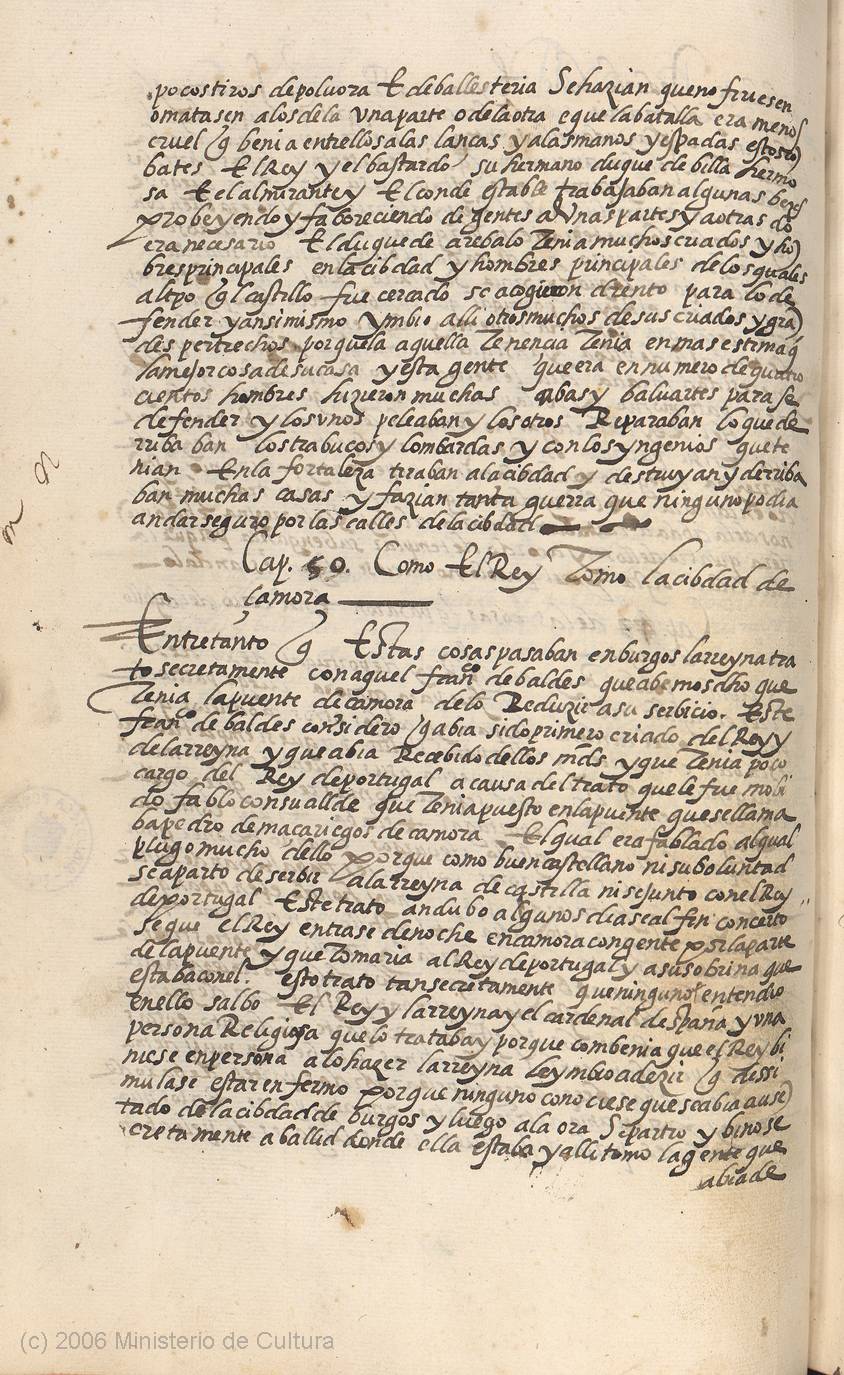 pocos tiros de polvora E de ballesteria Se hazian que no fuesen
o matasen a los de la vna parte o de la otra e que la batalla era menos
cruel q benia entrellos a las lanças y a las manos y espadas estos cō
bates El Rey y el bastardo su hermano duque de billa hermo
sa E el almirante y El conde estable trabajaban algunas bezes
probeyendo y faboreciendo de gentes a vnas partes y a otras do
era necesario El duque de arebalo Tenia muchos criados y hō
bres principales en la cibdad y hombres principales de los quales
al tpo q l castillo fue cercado se acogieron dento para lo de
fender y ansi mismo ymbio alli otros muchos de sus criados y grā
des pertrechos porque la aquella Tenencia Tenia en mas estima q
la mejor cosa de su casa y esta gente que era en numero de quatro
cientos hombres hizieron muchas abas y baluartes para se
defender y los vnos peleaban y los otros Reparaban lo que de
rriba ban los trabucos y lombardas y con los yngenios que te
nian En la fortaleza tiraban a la cibdad y destruyan y derriba
ban muchas casas y fazian tanta guerra que ninguno podia
andar seguro por las calles de la cibdad
Cap. 50. Como El Rey Tomo la cibdad de
çamora
Entretanto q Estas cosas pasaban en burgos la rreyna tra
to secretamente con aquel franco de baldes que abemos dho que
Tenia la puente de çamora de lo Reduzir a su serbicio. Este
franco de baldes considero q abia sido primero criado del Rey y
de la rreyna y que abia Recebido dellos mds y que Tenia poco
cargo del Rey de portugal a causa del trato que le fue mobi
do fablo con su allde que Tenia puesto en la puente que se llama
ba pedro de maçariegos de çamora El qual era fablado al qual
plugo mucho dello porque como buen castellano ni su boluntad
se aparto de serbir a la rreyna de castilla ni se junto con el Rey
de portugal Este trato andubo algunos dias e al fin concerto
se que el Rey entrase de noche en çamora con gente por la parte
de la puente y que Tomaria al Rey de portugal y a su sobrina que
estaba con el. esto trato tan secretamente que ninguno entendio
en ello salbo El Rey y la rreyna y el cardenal despaña y vna
persona Religiosa que lo trataba y porque combenia que el Rey bi
niese en persona a lo hazer la rreyna le ymbio a dezir q dissi
mulase estar enfermo porque ninguno conociese que se abia ausē
tado de la cibdad de burgos y luego a la ora Se partio y bino se
cretamente a ballid donde ella estaba y alli tomo la gente que
abia de
(c) 2006 Ministerio de Cultura